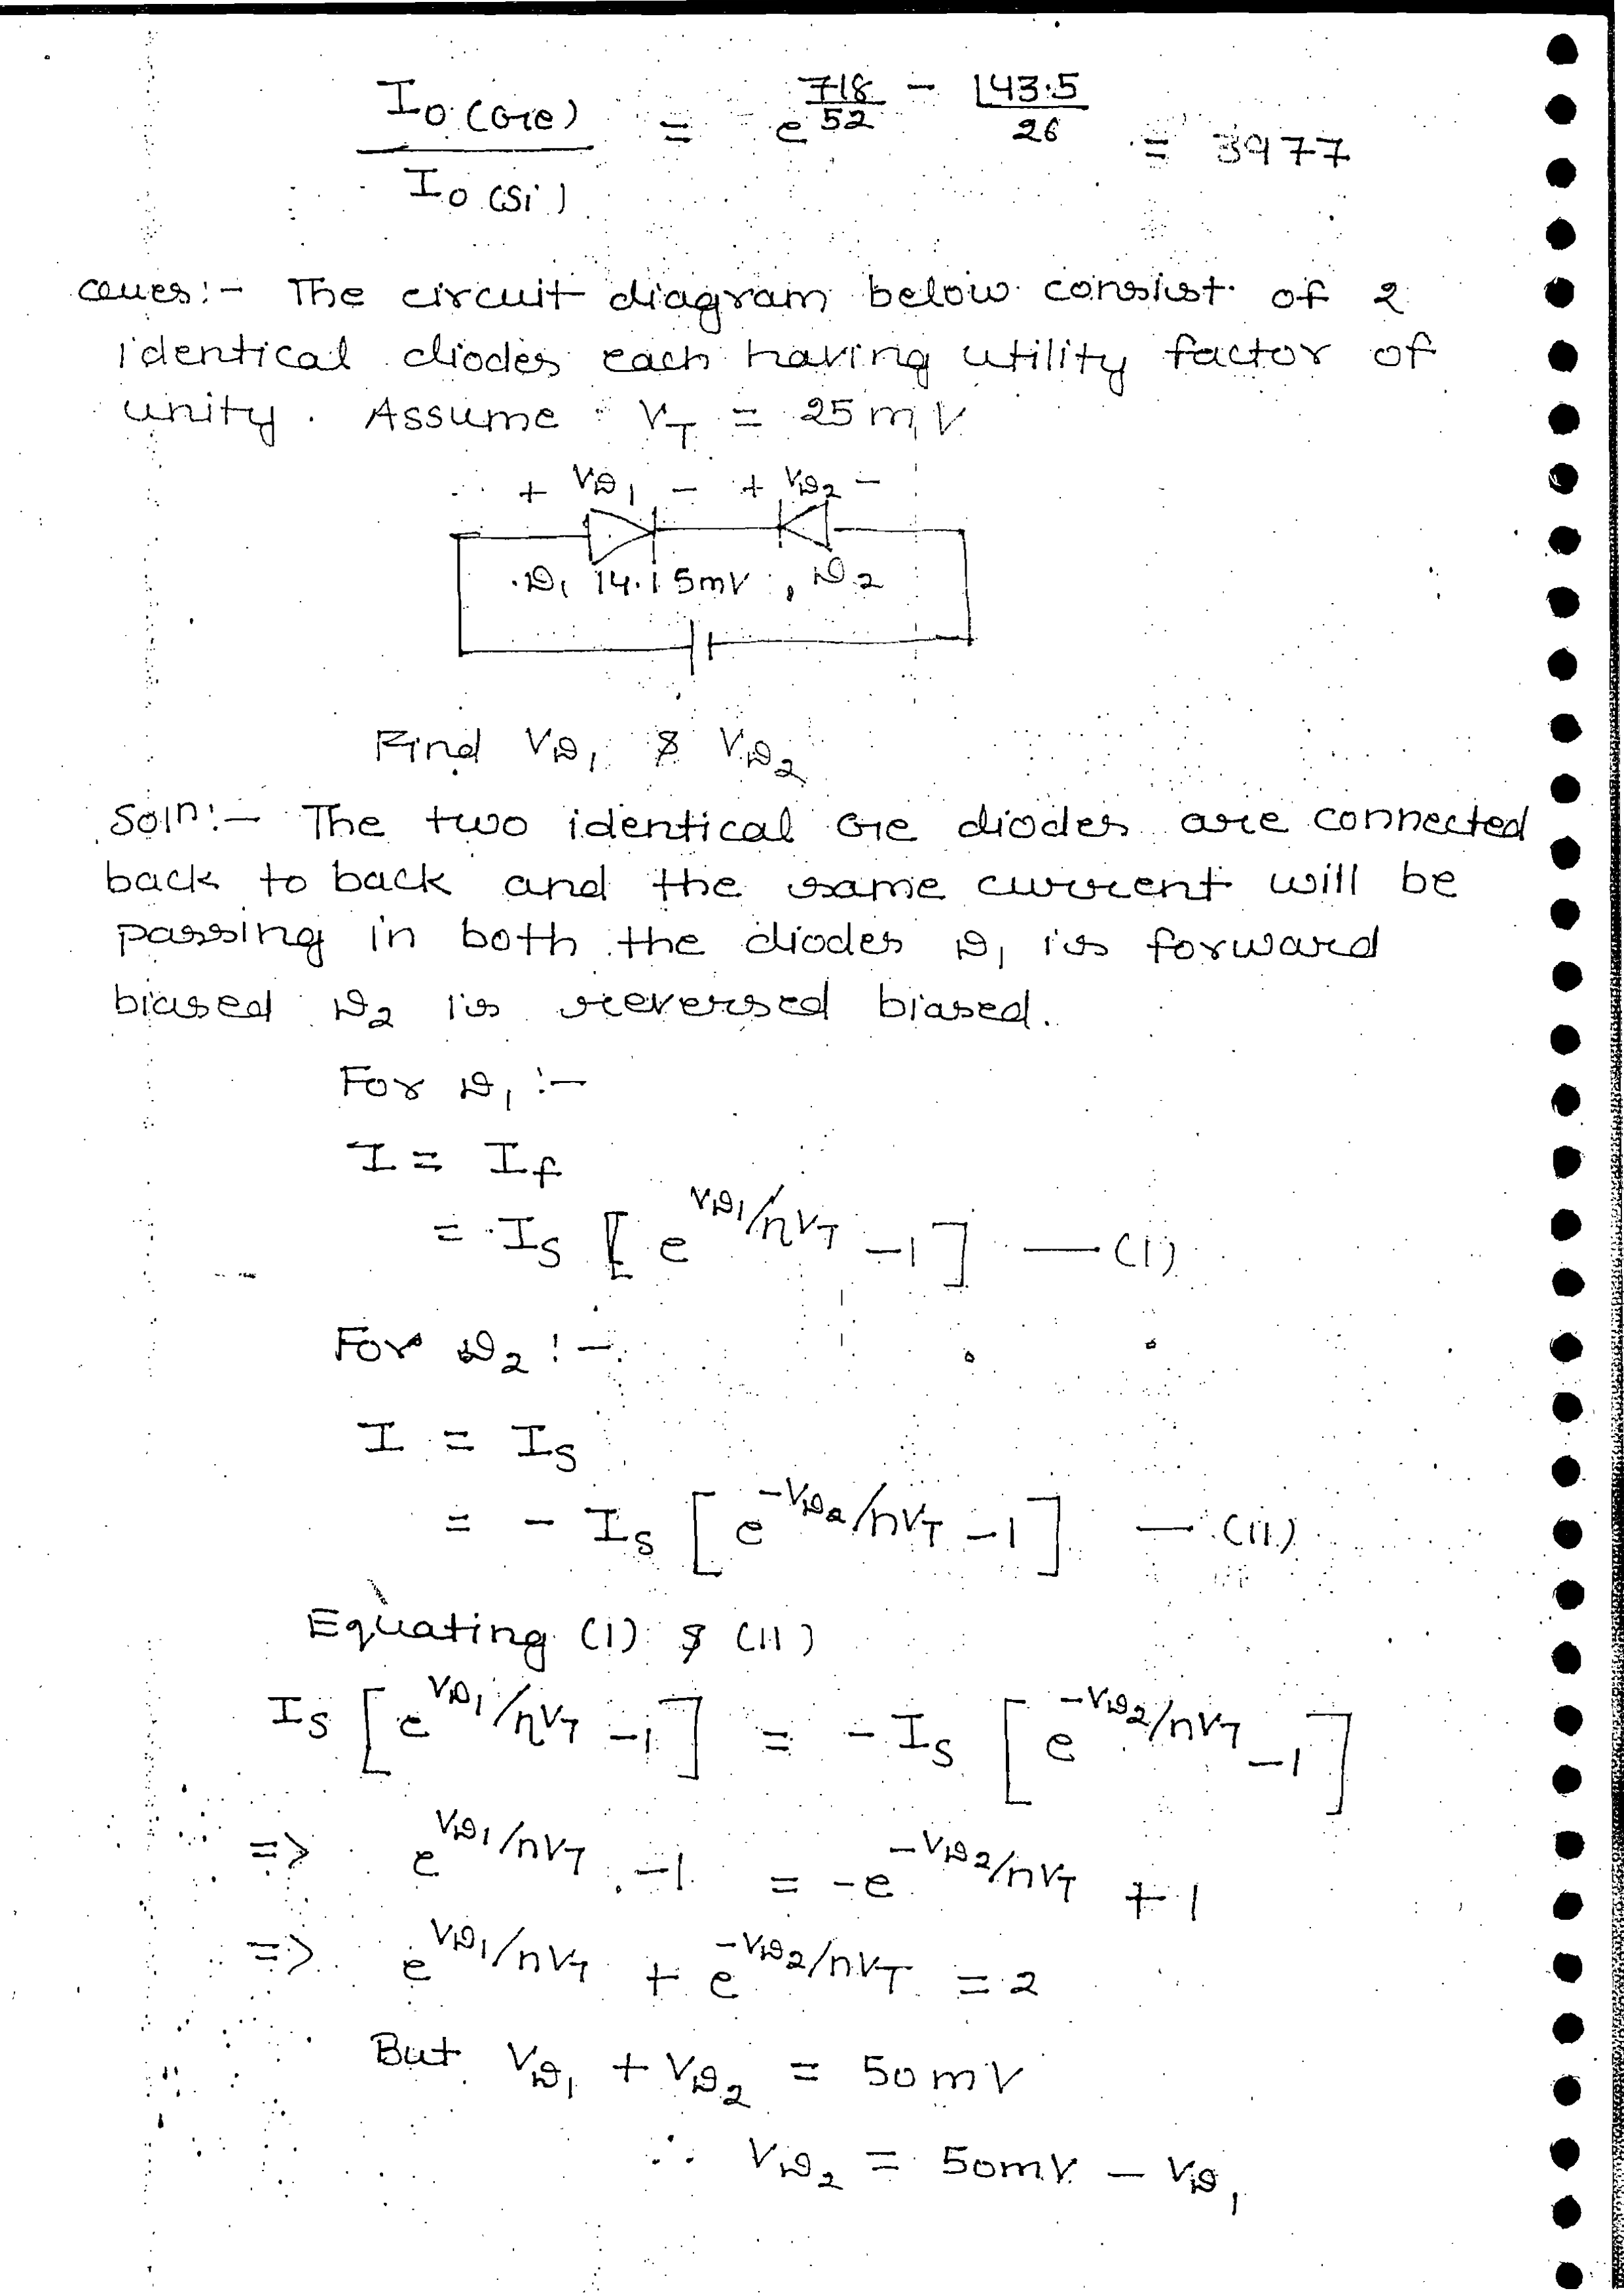 I₀(Ge) / I₀(Si) = e^(718/52 − 143.5/26) = 3977
Ques:- The circuit diagram below consist of 2
identical diodes each having utility factor of
unity. Assume V_T = 25mV
+ V_D₁ − + V_D₂ −
D₁ 14.15mV , D₂
Find V_D₁ & V_D₂
Soln:- The two identical Ge diodes are connected
back to back and the same current will be
passing in both the diodes D₁ is forward
biased D₂ is reversed biased.
For D₁ :-
I = I_f
= I_S [ e^(V_D₁/ηV_T) −1 ] — (I)
For D₂ :-
I = I_S
= − I_S [ e^(−V_D₂/ηV_T) −1 ] — (II)
Equating (I) & (II)
I_S [ e^(V_D₁/ηV_T) −1 ] = − I_S [ e^(−V_D₂/ηV_T) −1 ]
=> e^(V_D₁/ηV_T) −1 = −e^(−V_D₂/ηV_T) + 1
=> e^(V_D₁/ηV_T) + e^(−V_D₂/ηV_T) = 2
But V_D₁ + V_D₂ = 50mV
∴ V_D₂ = 50mV − V_D₁